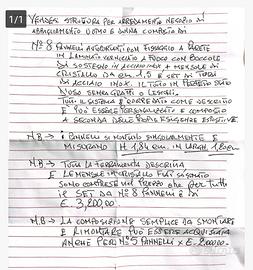 1/1
VENDESI STRUTTURA PER ARREDAMENTO NEGOZIO DI
ABBIGLIAMENTO UOMO E DONNA COMPOSTA DA
N° 8 PANNELLI AUTOPORTANTI CON FISSAGGIO A PARETE
IN LAMINATO VERNICIATO A FUOCO CON BOCCOLE
DI SOSTEGNO IN ACCIAIO INOX E MENSOLE DI
CRISTALLO DA cm. 1,5 E SET DI TUBI
IN ACCIAIO INOX. IL TUTTO IN PERFETTO STATO
D'USO SENZA GRAFFI O LESIONI.
TUTTO IL SISTEMA È CORREDATO COME DESCRITTO
E PUÒ ESSERE PERSONALIZZATO E COMPOSTO
A SECONDA DELLE PROPRIE ESIGENZE ESPOSITIVE
N.B → I PANNELLI SI MONTANO SINGOLARMENTE E
MISURANO H 1,84 cm. IN LARGH. 1,80 cm
N.B → TUTTA LA FERRAMENTA DESCRITTA
E LE MENSOLE IN CRISTALLO
SONO COMPRESE NEL PREZZO CHE PER TUTTO
IL SET DA N° 8 PANNELLI È DI
€ 3,800,00.
N.B → LA COMPOSIZIONE SEMPLICE DA SMONTARE
E RIMONTARE PUÒ ESSERE ACQUISTATA
ANCHE PER N° 5 PANNELLI x €. 2000,00.